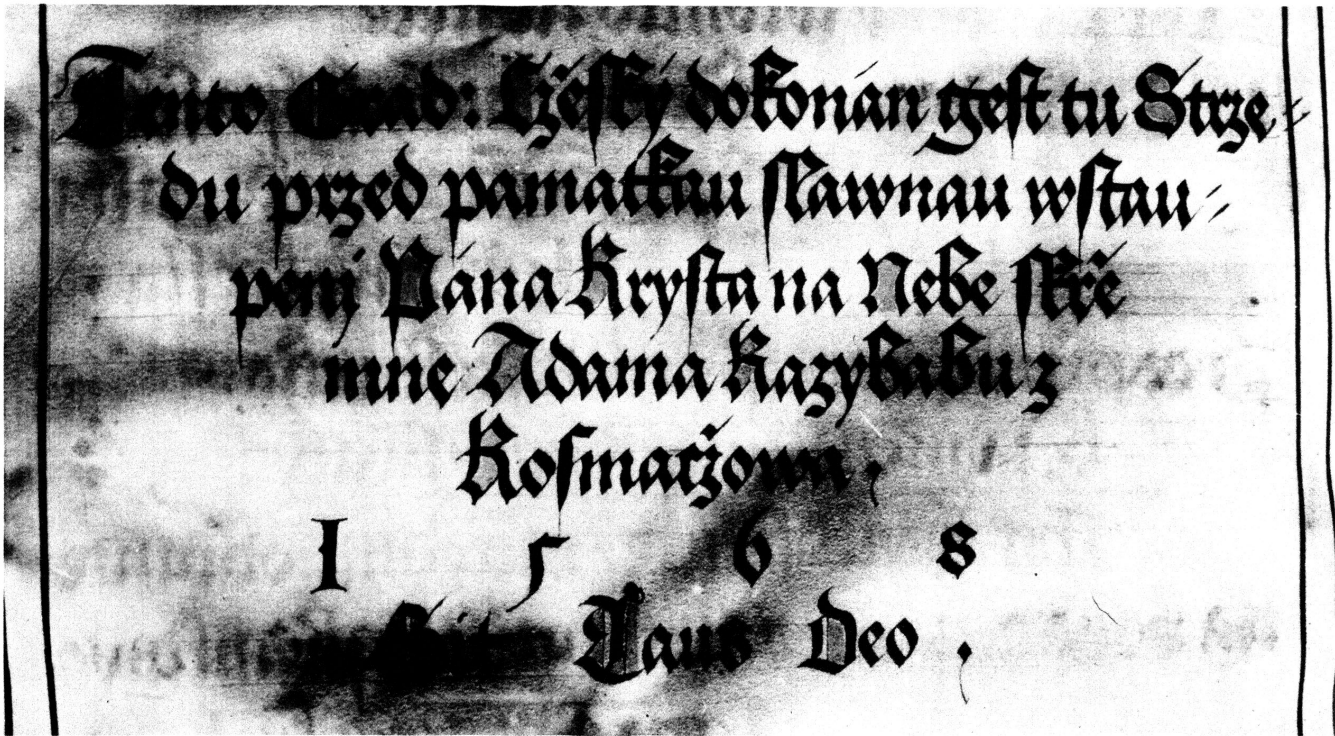 Tento Grad: Cžesky dokonán gest tu Strze-
du przed pamatkau slawnau wstau-
penj Pána Krysta na Nebe skře
mne Adama Kazybabu z
Kosmaczowa,
1568
Sit Laus Deo,